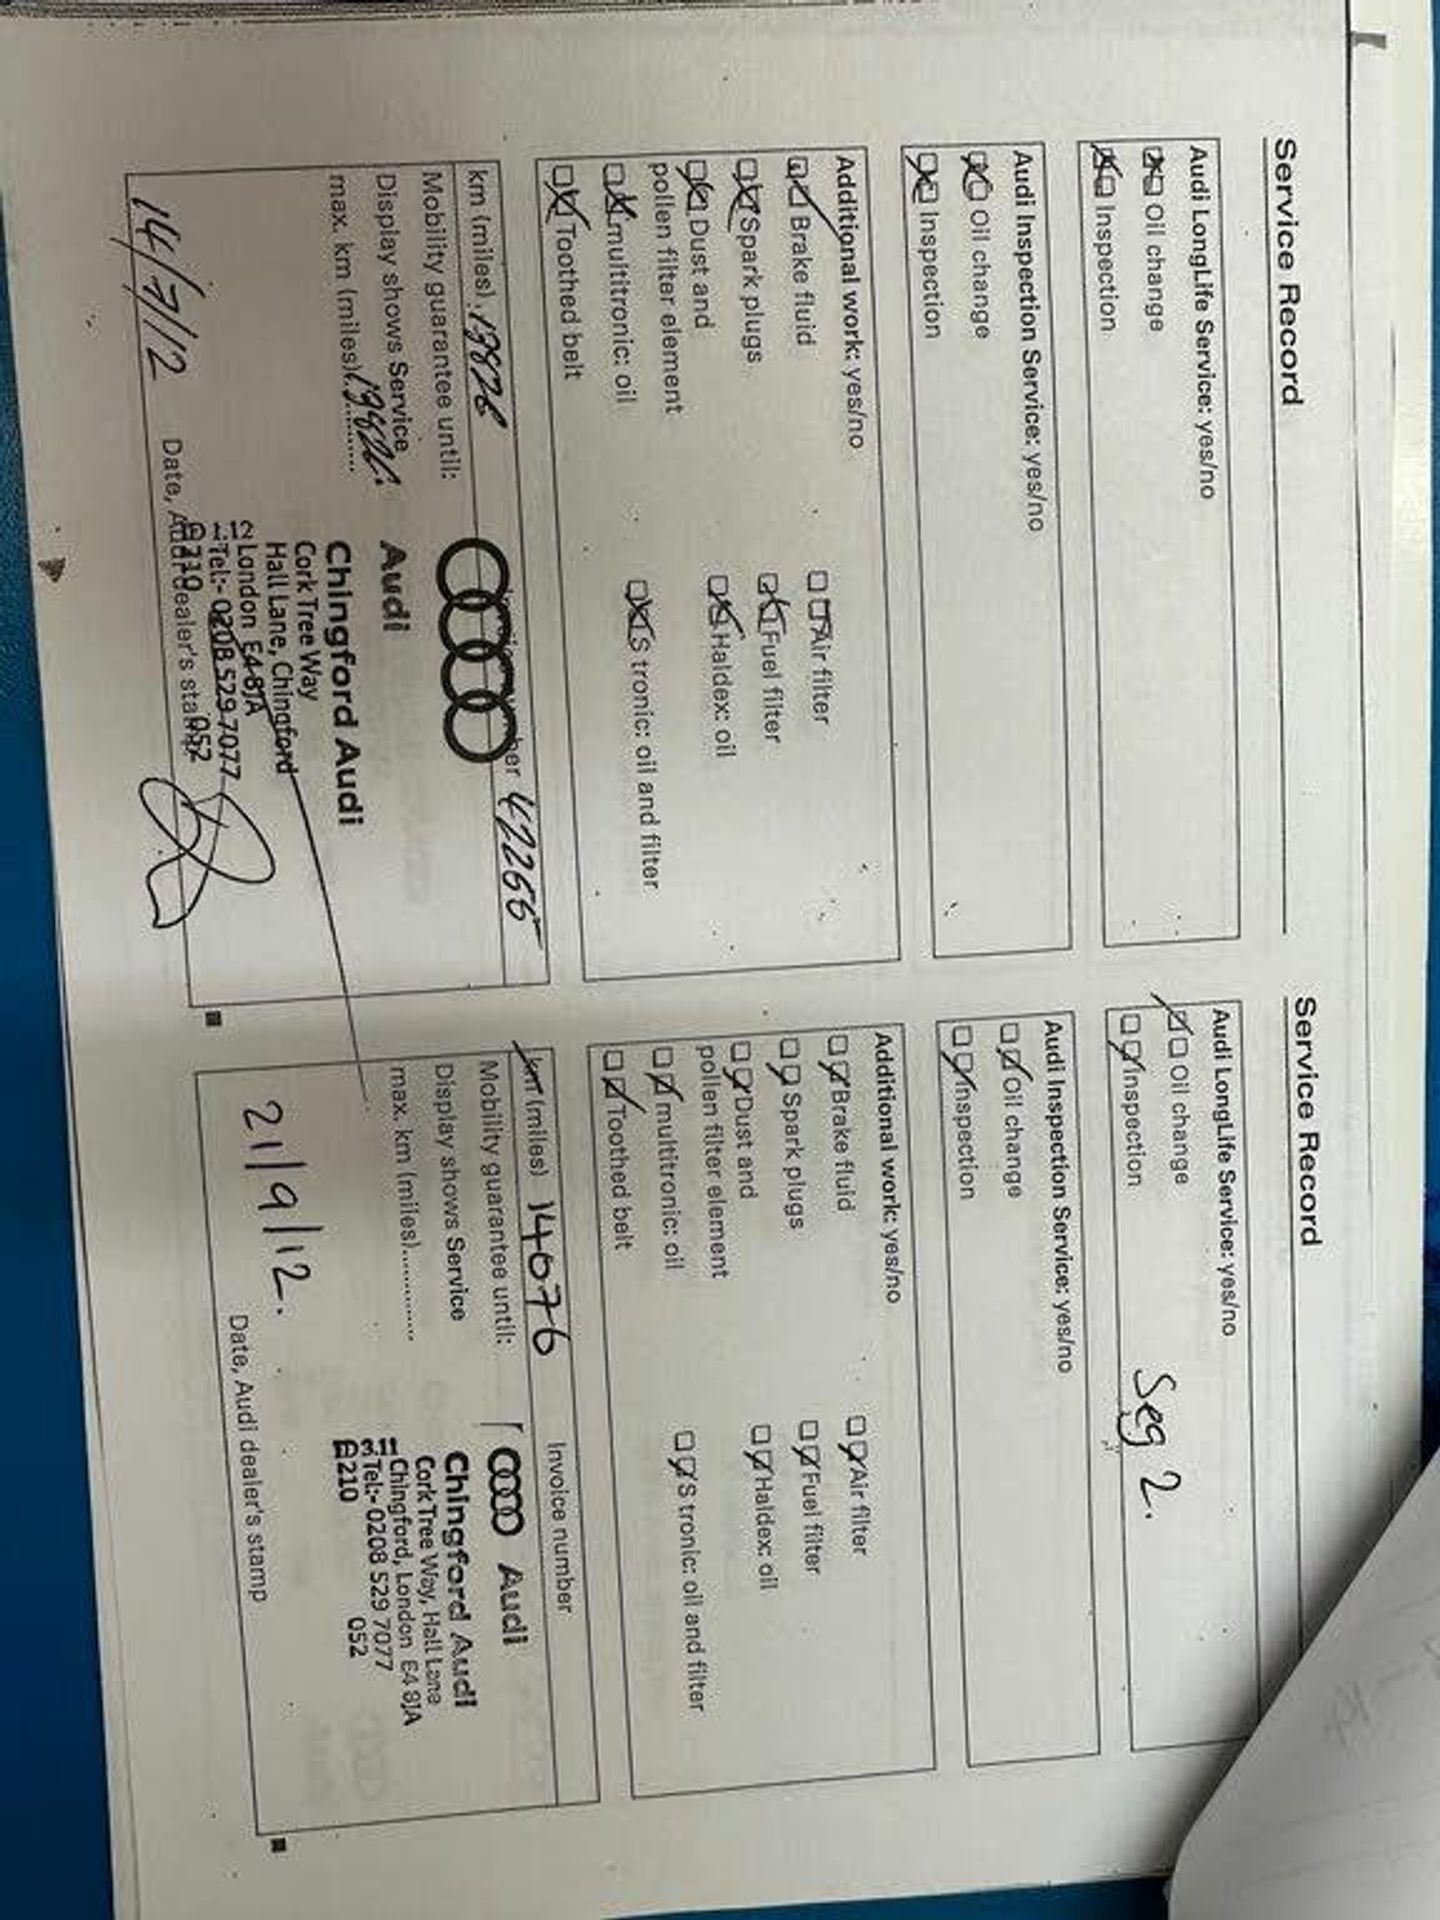 Service Record
Audi LongLife Service: yes/no
Oil change
Inspection
Audi Inspection Service: yes/no
Oil change
Inspection
Additional work: yes/no
Brake fluid
Air filter
Spark plugs
Fuel filter
Dust and
pollen filter element
Haldex: oil
multitronic: oil
S tronic: oil and filter
Toothed belt
km (miles)
42265
Mobility guarantee until:
Audi
Display shows Service
max. km (miles)
Chingford Audi
Cork Tree Way
Hall Lane, Chingford
London E4 8JA
Tel:- 0208 529 7077
210 052
14/7/12
Date, Audi dealer's stamp
Service Record
Audi LongLife Service: yes/no
Oil change
Inspection
Seg 2.
Audi Inspection Service: yes/no
Oil change
Inspection
Additional work: yes/no
Brake fluid
Air filter
Spark plugs
Fuel filter
Dust and
pollen filter element
Haldex: oil
multitronic: oil
S tronic: oil and filter
Toothed belt
km (miles) 14076
Invoice number
Mobility guarantee until:
Audi
Display shows Service
max. km (miles)............
Chingford Audi
Cork Tree Way, Hall Lane
Chingford, London E4 8JA
Tel:- 0208 529 7077
210 052
21/9/12.
Date, Audi dealer's stamp